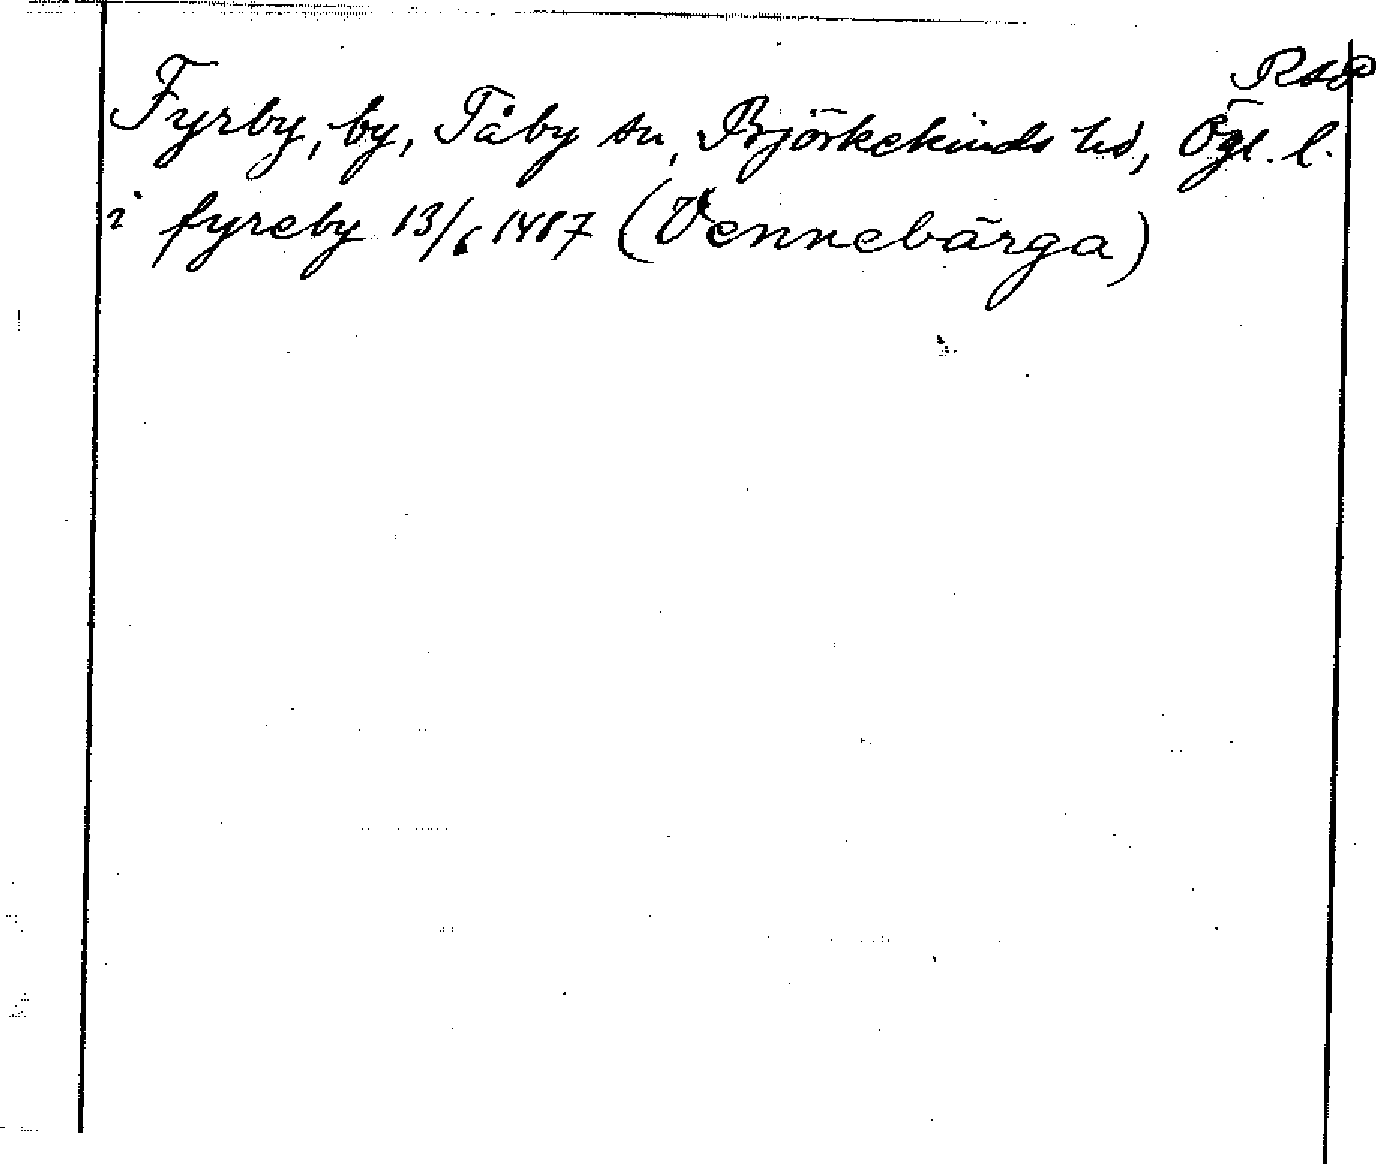 Fyrby, by, Tåby sn, Björkekinds hd, Ögl. l.
i fyreby 13/6 1487 (Vennebärga)